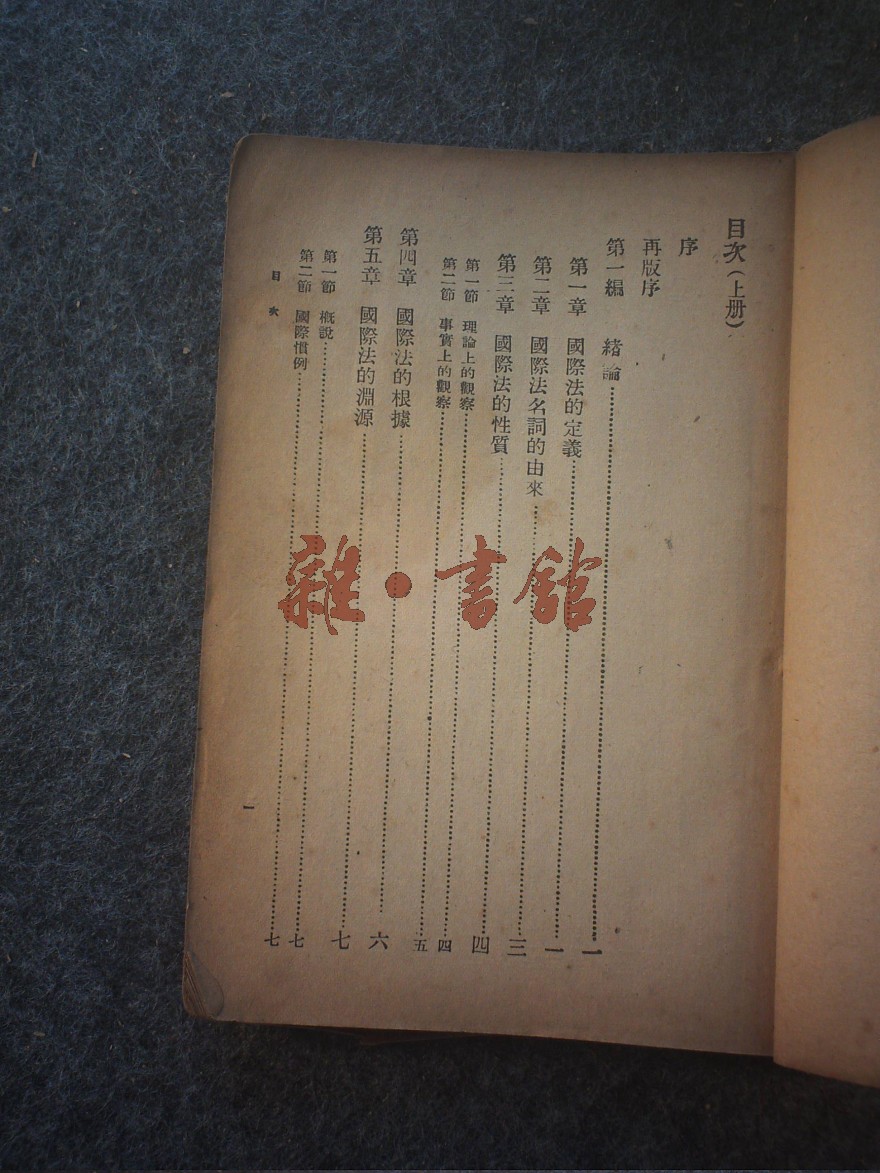 目次(上册)
序
再版序
第一編 緒論……一
第一章 國際法的定義……一
第二章 國際法名詞的由來……三
第三章 國際法的性質……四
第一節 理論上的觀察……四
第二節 事實上的觀察……五
第四章 國際法的根據……六
第五章 國際法的淵源……七
第一節 概說……七
第二節 國際慣例……七
目次
一
雜·書館